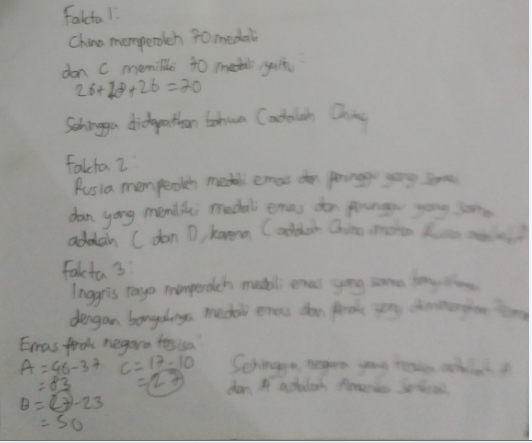 Fakta 1:
China memperoleh 70 medali
dan C memiliki 70 medali yaitu:
26+18+26 = 70
Sehingga didapatkan bahwa C adalah China
Fakta 2:
Rusia memperoleh medali emas dan perunggu yang sama
dan yang memiliki medali emas dan perunggu yang sama
adalah C dan D, karena C adalah China maka Rusia adalah
Fakta 3:
Inggris raya memperoleh medali emas yang sama banyaknya
dengan banyaknya medali emas dan perak yang
Emas perak negara tersisa:
A = 46-37 C = 17-10
= 83 = 27
B = 27-23
= 50
Sehingga, negara yang tersisa adalah A
dan A adalah Amerika Serikat